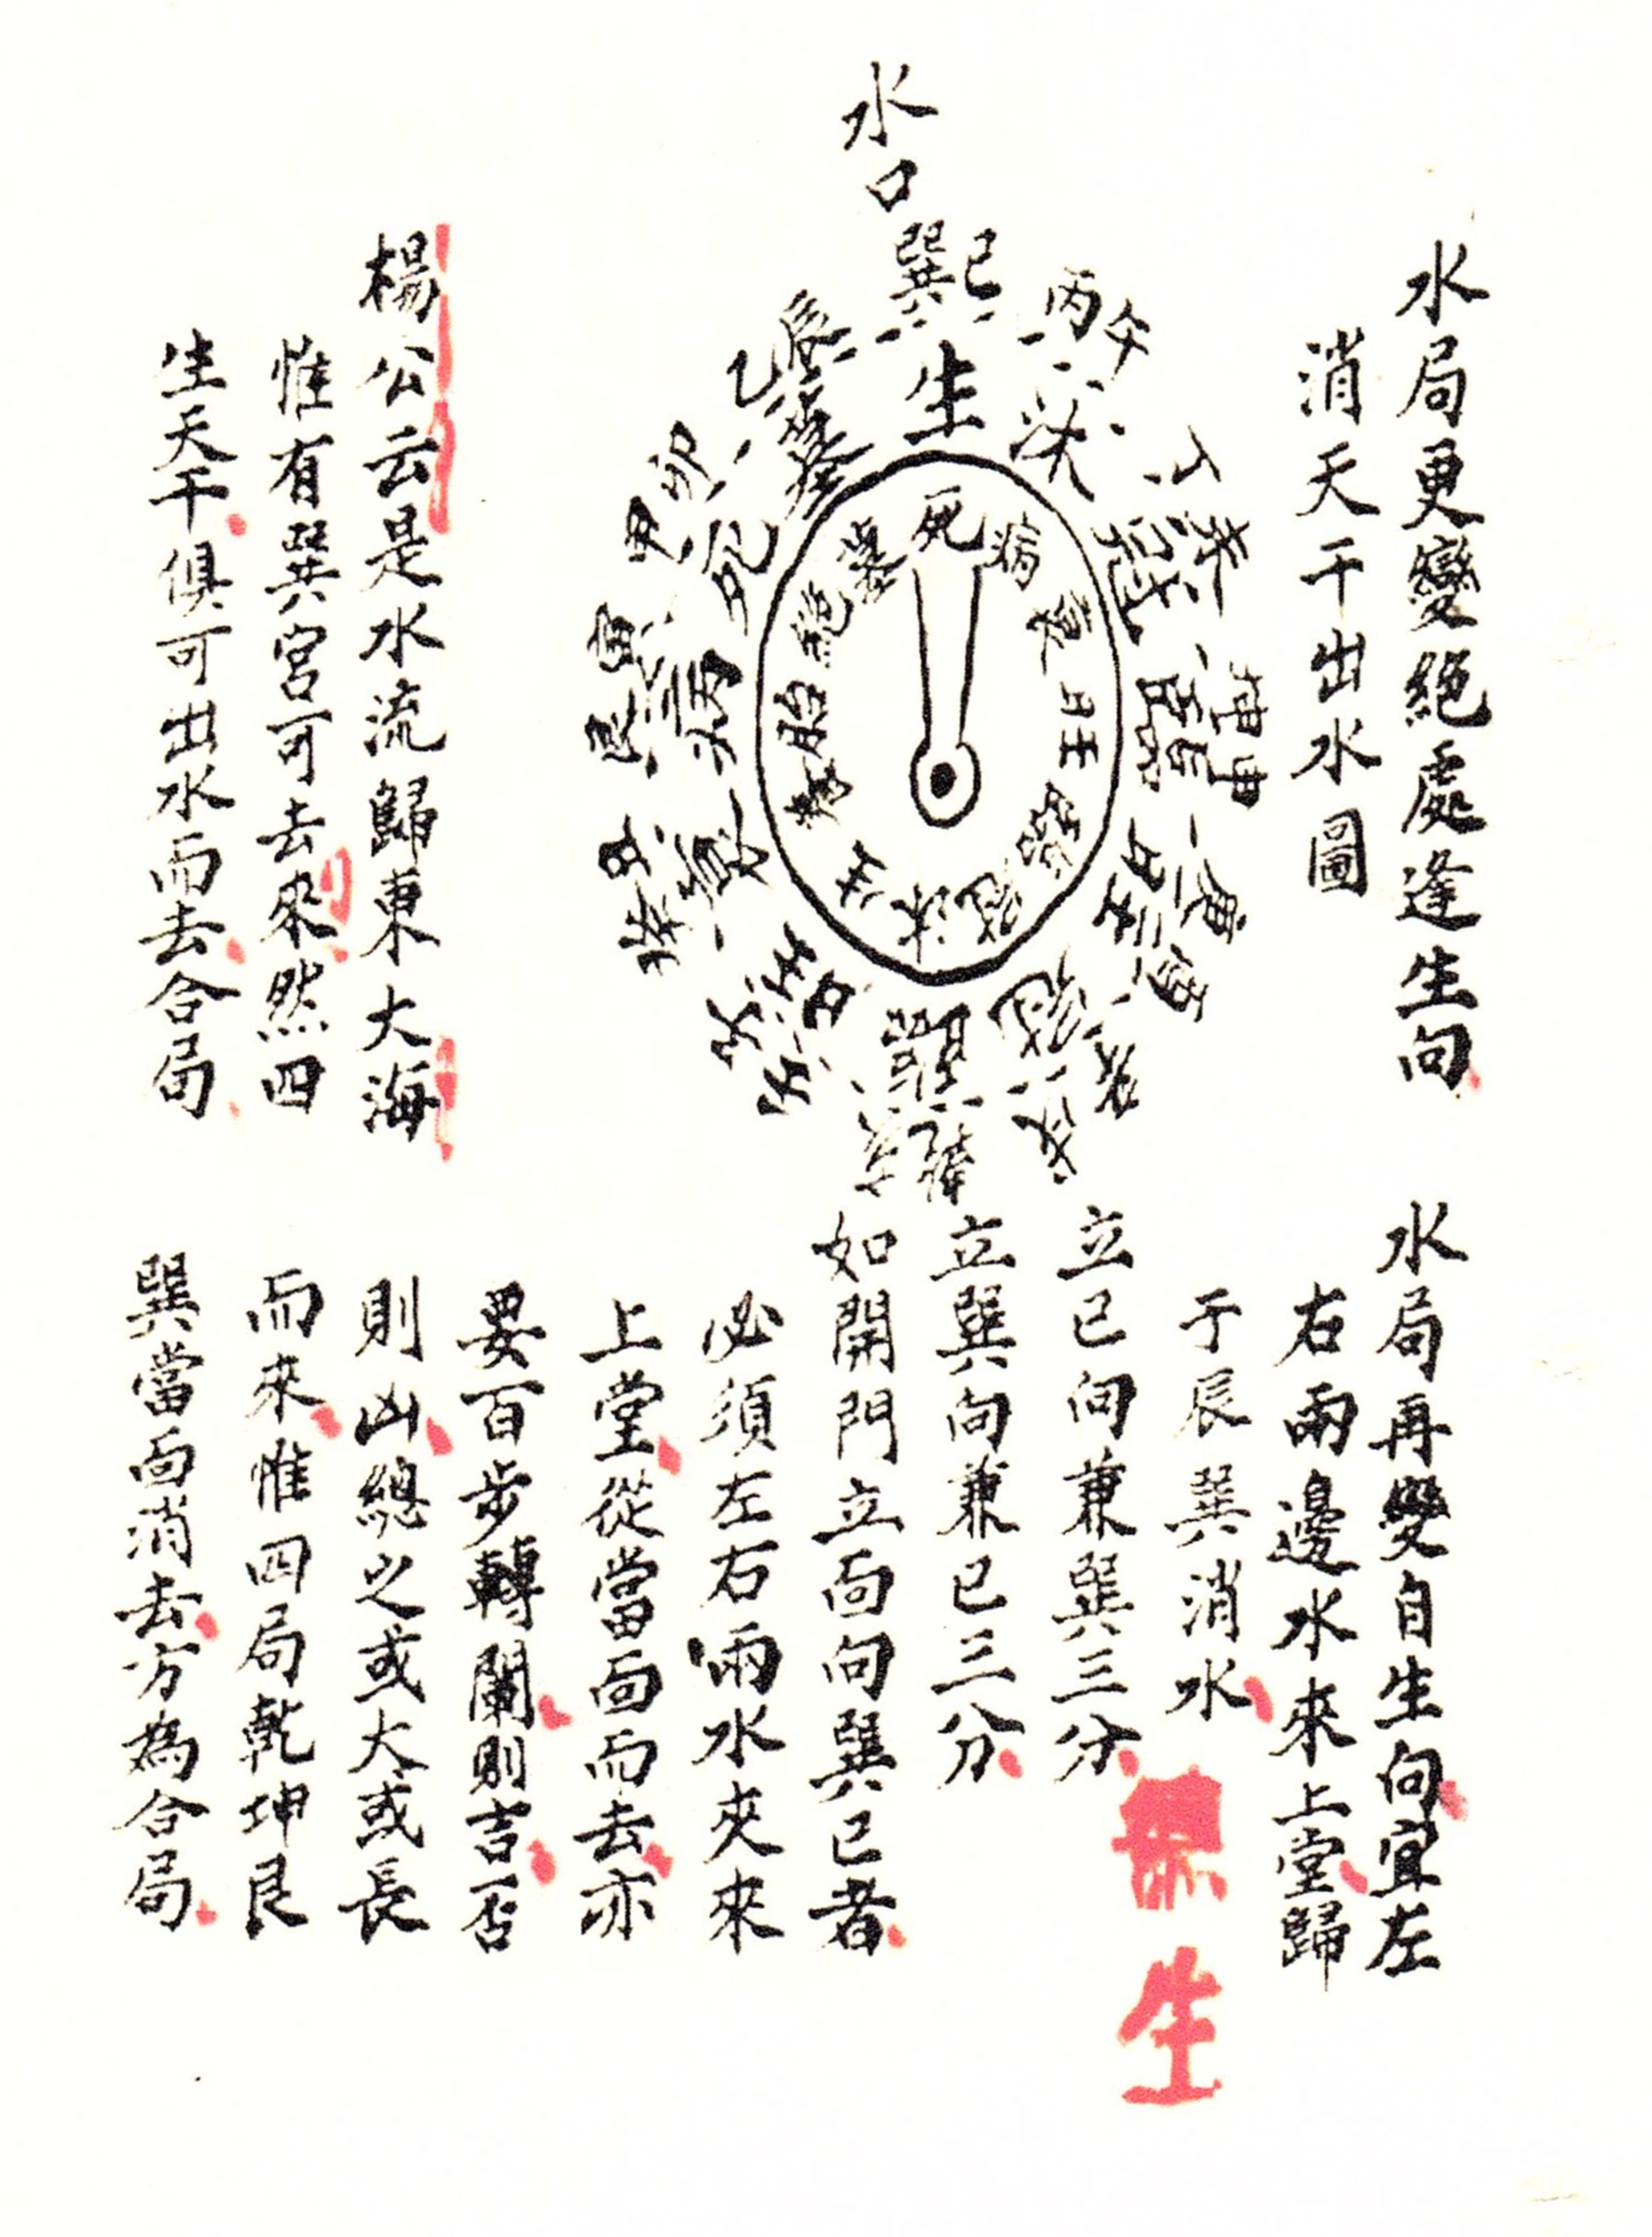 水局更變絕處逢生向
消天干出水圖
水口
巽巳
丙午
丁未
坤申
庚酉
辰
乙
卯
甲
寅
艮
丑
癸
子
壬
生
沐
冠
臨
旺
衰
病
死
墓
死
病
衰
旺
臨
冠
沐
生
養
胎
絕
墓
楊公云是水流歸東大海
惟有巽宮可去來然四
生天干俱可出水而去合局
水局再變自生向宜左
右兩邊水來上堂歸
于辰巽消水
立巳向兼巽三分
立巽向兼巳三分
如開門立面向巽巳者
必須左右兩水夾來
上堂從當面而去亦
要百步轉闌則吉否
則凶總之或大或長
而來惟四局乾坤艮
巽當面消去方為合局
生